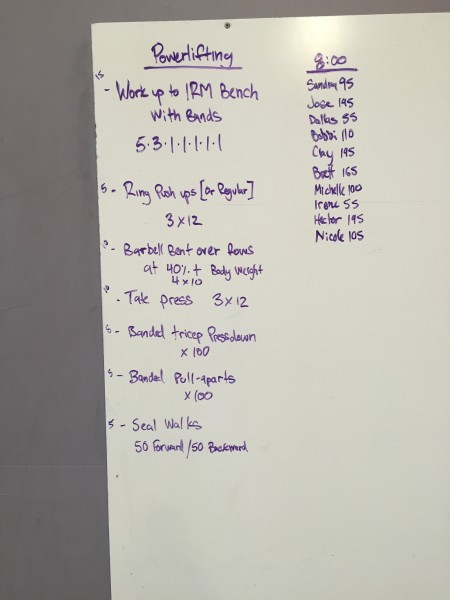 Powerlifting
15 - Work up to 1RM Bench
With Bands
5·3·1·1·1·1·1
5 - Ring Push ups [or Regular]
3 x 12
- Barbell Bent over Rows
at 40% + Body Weight
4 x 10
- Tate press 3 x 12
5 - Banded tricep Pressdown
x 100
5 - Banded Pull-aparts
x 100
5 - Seal Walks
50 Forward / 50 Backward
8:00
Sandra 95
Jose 195
Dallas 55
Bobbi 110
Clay 195
Brett 165
Michelle 100
Irene 55
Hector 195
Nicole 105